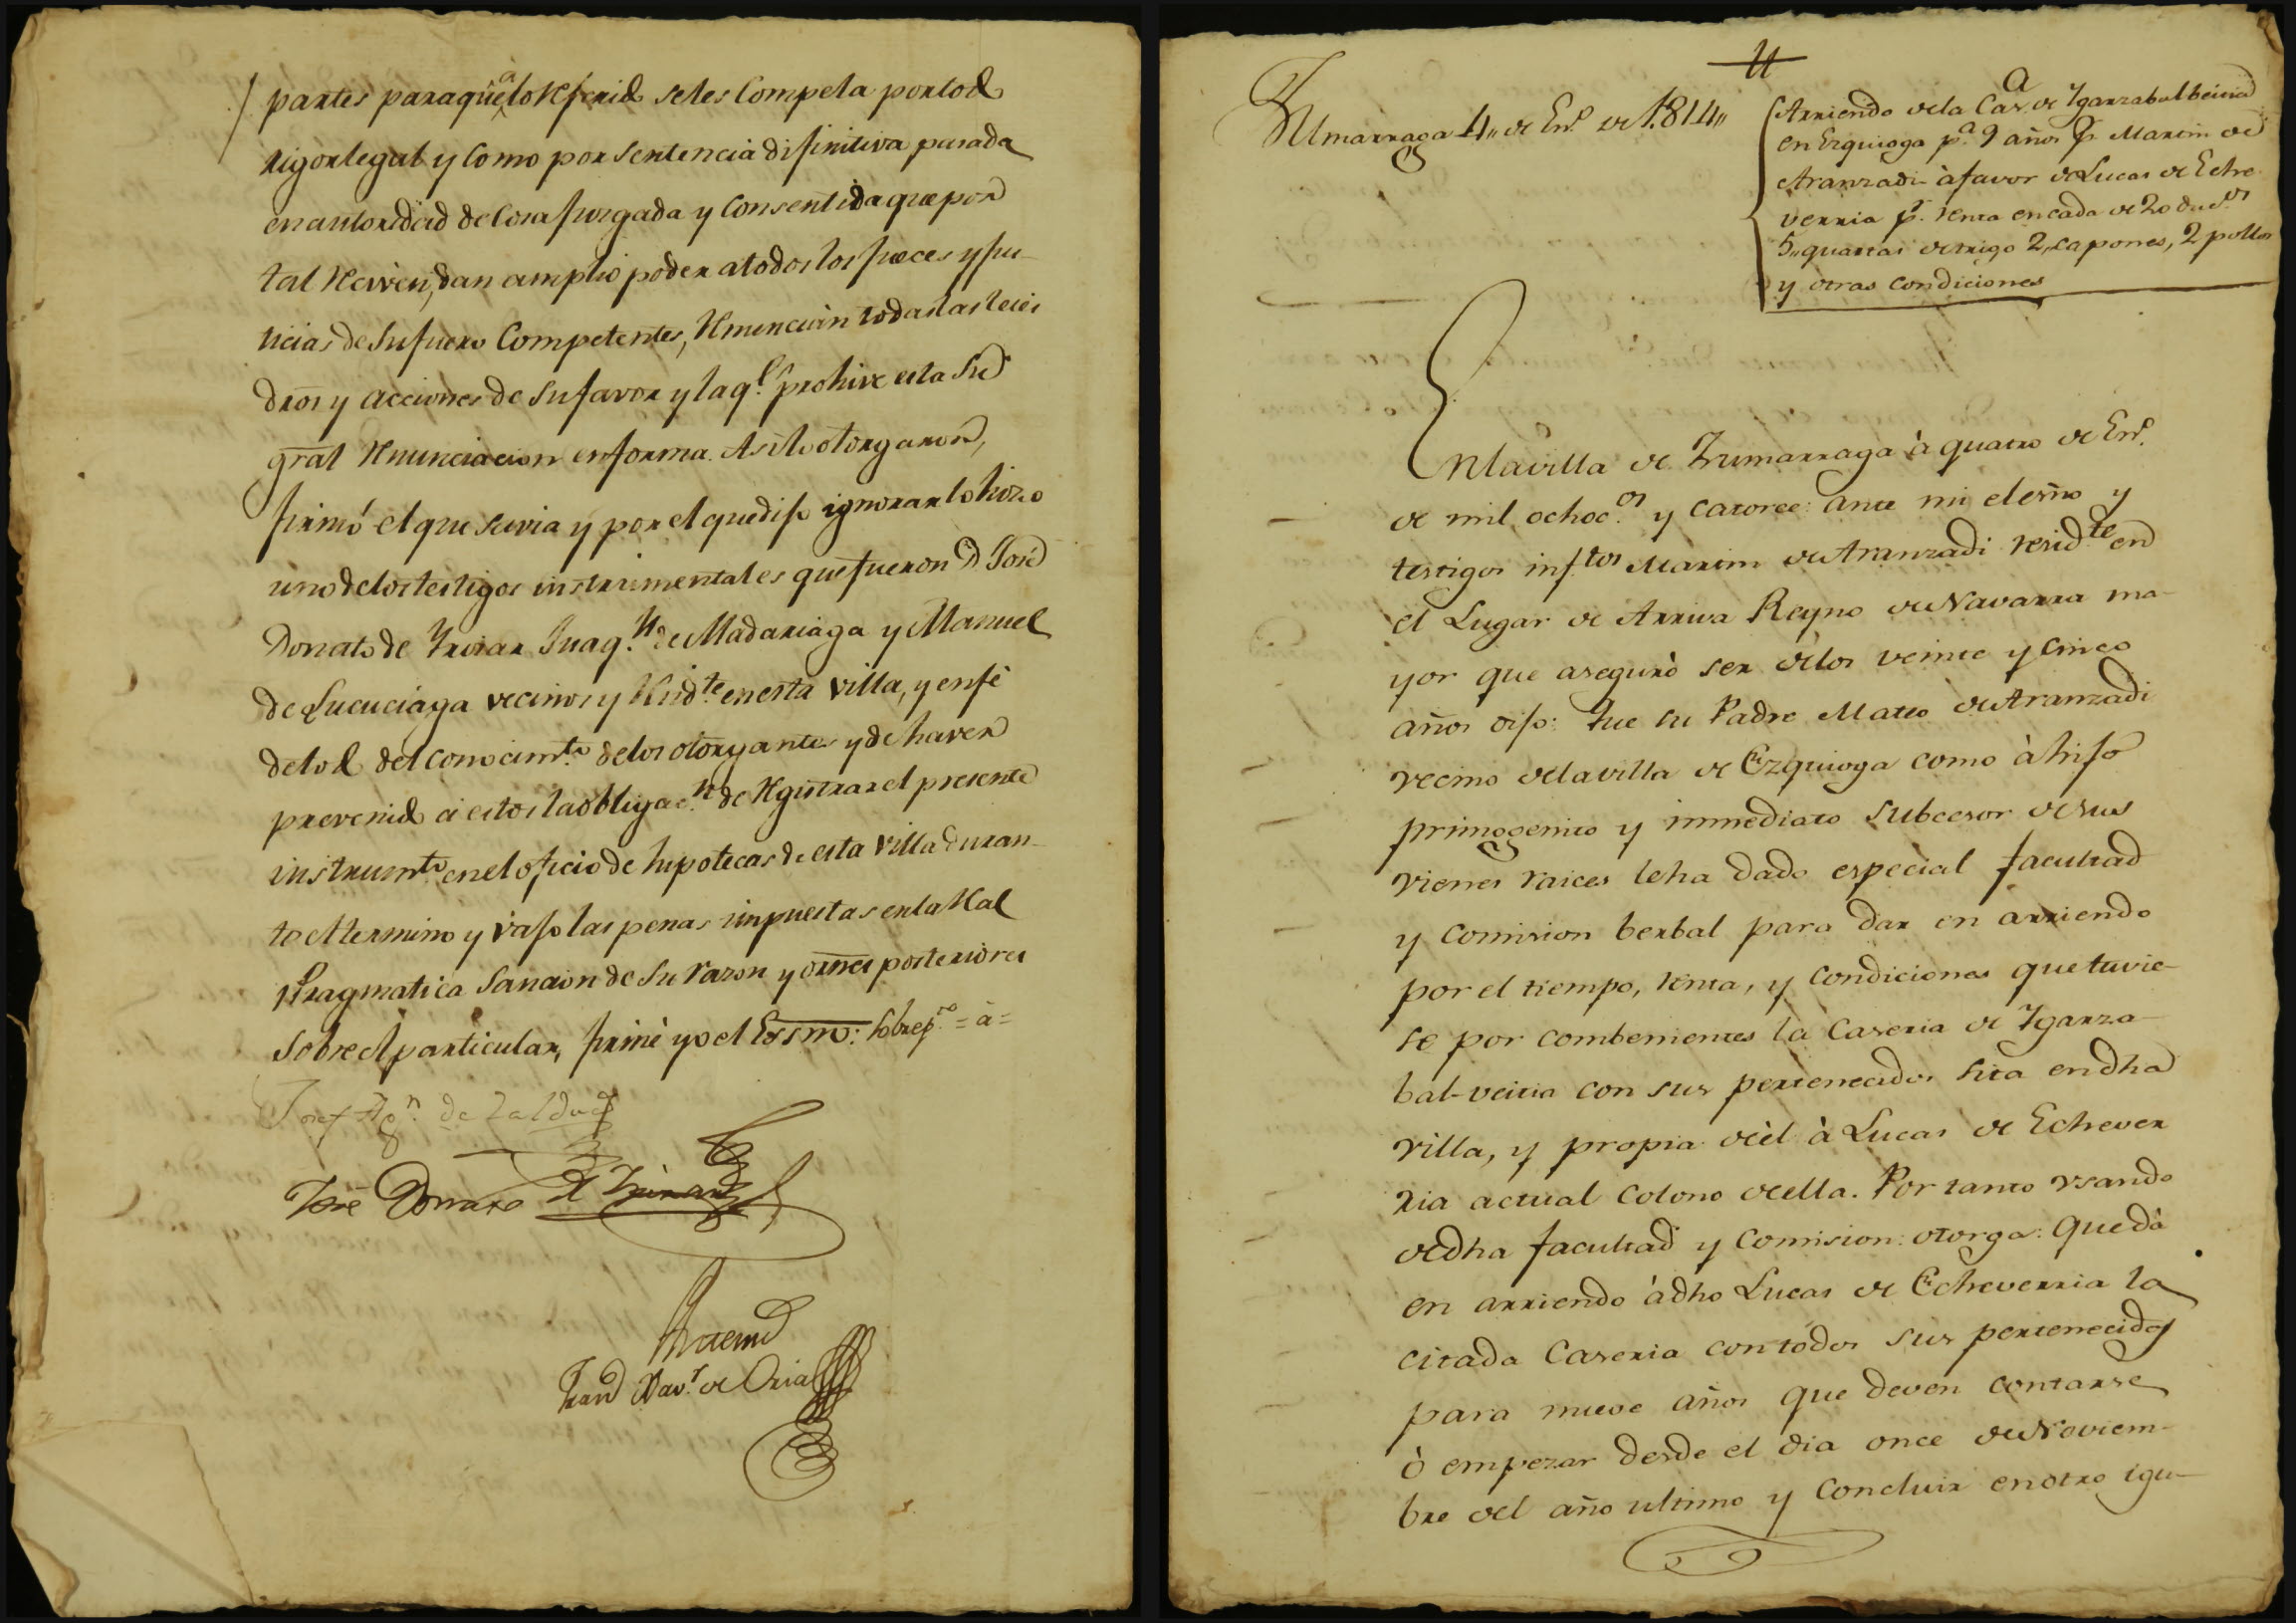 partes para que a lo referido se les Compela por todo
rigor legal y Como por sentencia difinitiva pasada
en autoridad de Cosa Juzgada y Consentida que por
tal reciven, dan amplio poder a todos los Jueces y Jus-
ticias de su fuero Competentes, renuncian todas las leies
dros y acciones de su favor y la q.e prohive esta su
gral renunciacion en forma. Asi lo otorgaron,
firmó el que savia y por el que dijo ignorar lo hizo
uno de los testigos instrumentales que fueron D. José
Donato de Yrizar Juaq.n de Madariaga y Manuel
de Lucuciaga vecinos y resid.te en esta villa, y en fé
de todo del conocim.to de los otorgantes y de haver
prevenido a estos la obligac.n de registrar el presente
instrum.to en el oficio de hipotecas de esta Villa duran-
te el termino y vajo las penas impuestas en la Real
Pragmatica Sancion de su razon y ornes posteriores
sobre el particular, firmé yo el Essno: sobrep.to = à =
Josef Ag.n de Zaldua
José Donato de Yrizar
Antemi
Fran Xav.r de Oria
Zumarraga 4,, de En.o de 1.814,,
Arriendo de la Cas.a de Yganzabalbeitia
en Ezquioga p.a 9 años p.r Martin de
Aranzadi à favor de Lucas de Eche-
verria p.r renta en cada de 20 duc.os
5,, quartas de trigo 2,, capones, 2 pollos
y otras condiciones
En la villa de Zumarraga à quatro de En.o
de mil ochoc.os y catorce: ante mi el esno y
testigos inf.tos Martin de Aranzadi resid.te en
el Lugar de Arriva Reyno de Navarra ma-
yor que aseguró ser de los veinte y cinco
años dijo: Que su Padre Mateo de Aranzadi
vecino de la villa de Ezquioga como à hijo
primogenito y inmediato subcesor de sus
vienes raices le ha dado especial facultad
y Comision berbal para dar en arriendo
por el tiempo, renta, y condiciones que tuvie-
se por combenientes la Caseria de Yganza-
bal-veitia con sus pertenecidos sita en dha
villa, y propia de èl à Lucas de Echever
ria actual colono de ella. Por tanto usando
de dha facultad y Comision: otorga: Que dà
en arriendo à dho Lucas de Echeverria la
citada Caseria con todos sus pertenecidos
para nueve años que deven contarse
ò empezar desde el dia once de Noviem-
bre del año ultimo y Concluir en otro igu-